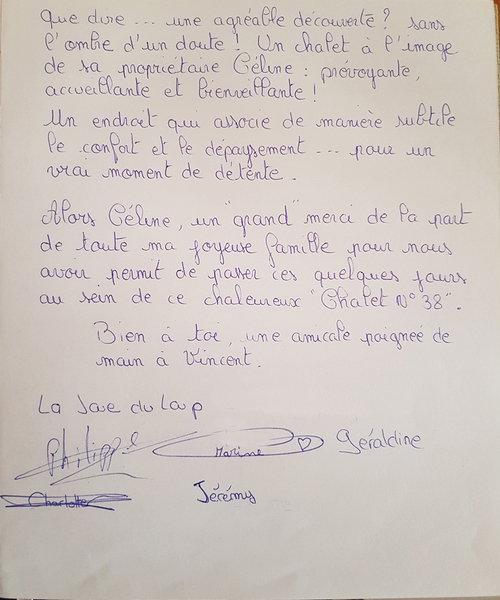 Que dire ... une agréable découverte ? sans
l'ombre d'un doute ! Un chalet à l'image
de sa propriétaire Céline : prévoyante,
accueillante et bienveillante !
Un endroit qui associe de manière subtile
le confort et le dépaysement ... pour un
vrai moment de détente.
Alors Céline, un "grand" merci de la part
de toute ma joyeuse famille pour nous
avoir permit de passer ces quelques jours
au sein de ce chaleureux "Chalet N° 38".
Bien à toi, une amicale poignée de
main à Vincent.
La Joie du Loup
Philippe Marine Géraldine
Charlotte Jérémy